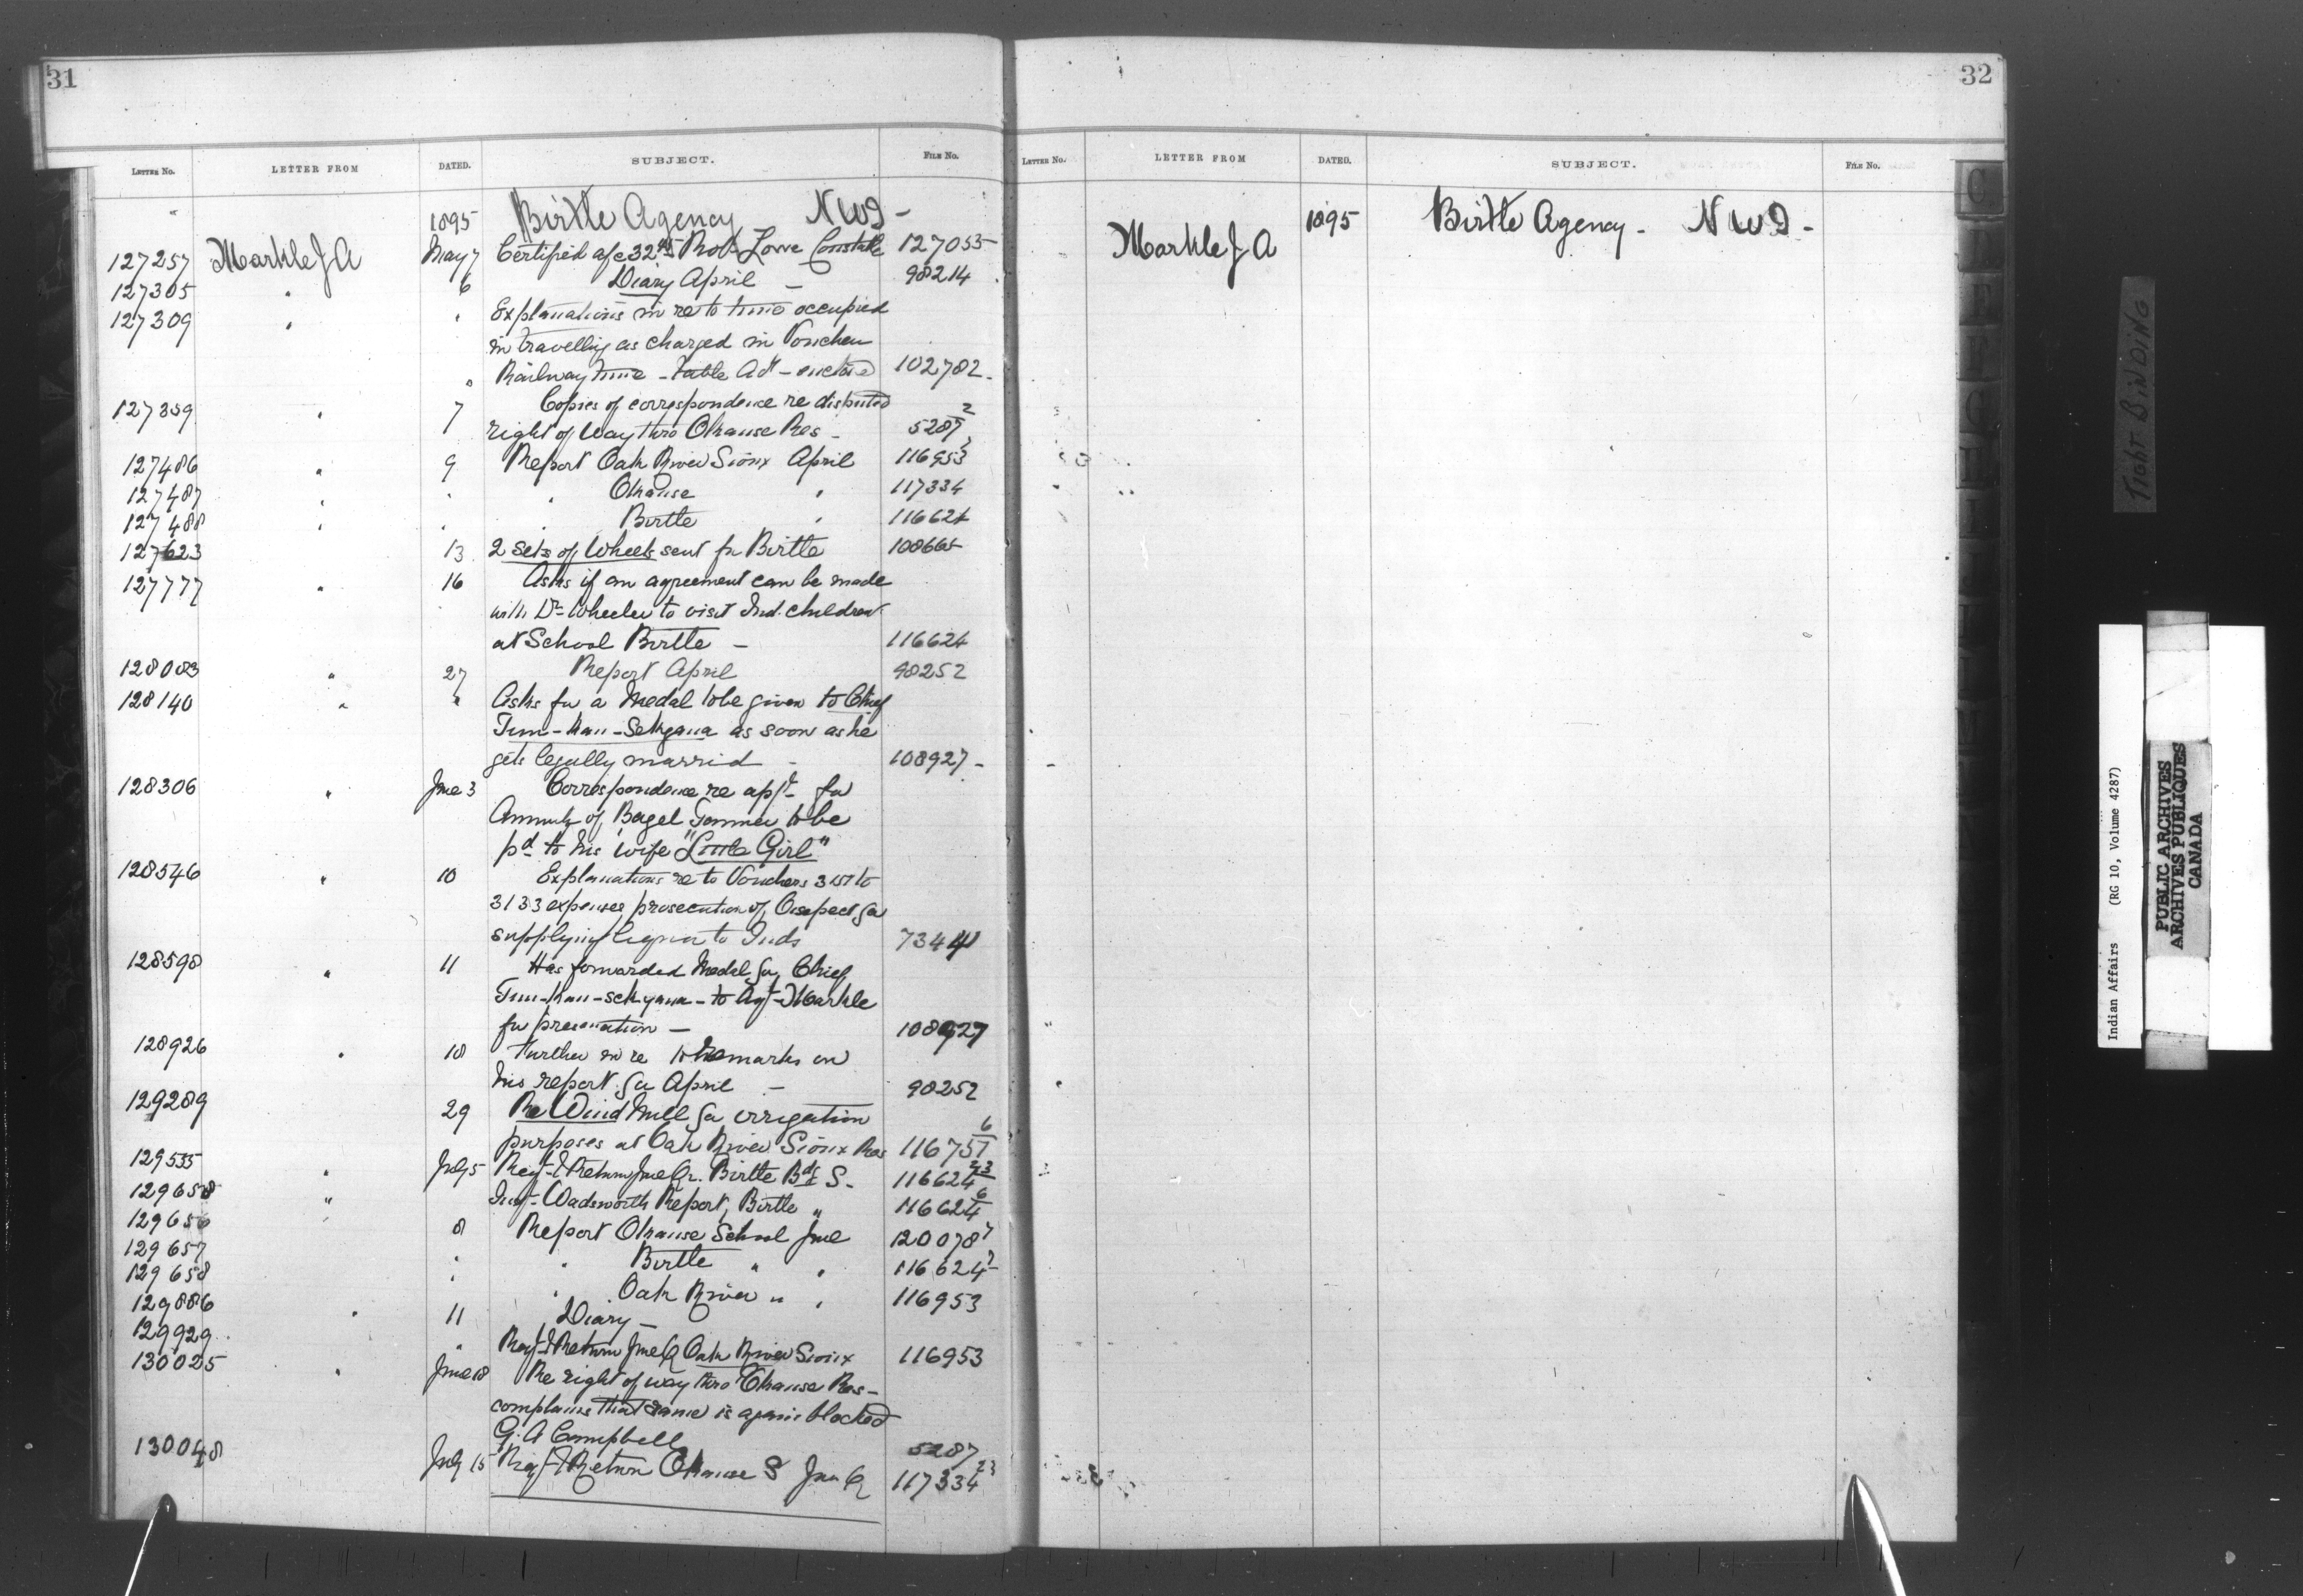 31
LETTER No. LETTER FROM DATED. SUBJECT. FILE No.
1895 Birtle Agency NWT -
127257 Markle J A May 7 Certified a/c 32 45 Robt Lowe Constable 127055
127305 " 6 Diary April - 98214
127309 " " Explanations in re to time occupied
in travelling as charged in Voucher
" Railway time - table Adt - enclosed 102782 -
127359 " 7 Copies of correspondence re disputed
right of Way thro Okanse Res - 5287 2
127486 " 9 Report Oak River Sioux April 116953
127487 " " " Okanse " 117334
127488 " " " Birtle " 116624
127623 13 2 sets of Wheels sent fr Birtle 108665
127777 " 16 Asks if an agreement can be made
with Dr Wheeler to visit Ind. children
at School Birtle - 116624
128083 " 27 Report April 98252
128140 " " Asks for a Medal to be given to Chief
as soon as he
gets legally married - 108927 -
128306 " June 3 Correspondence re appn for
Annuity of to be
pd to his wife "Little Girl"
128546 " 10 Explanations re to Vouchers 3151 to
3133 expenses prosecution of for
supplying liquor to Inds 7344
128598 " 11 Has forwarded Medal for Chief
to Agt Markle
for presentation - 108927
128926 " 18 Further in re to remarks on
his report for April - 98252
129289 29 Re Wind Mill for irrigation
purposes at Oak River Sioux Res 116751 6
129535 " July 5 Reqt & Return June Qr. Birtle Bdg S - 116624 23
129658 " Insp. Wadsworth Report, Birtle " 116624 6
129656 8 Report Okanse School June 120078 7
129657 " " Birtle " " 116624 7
129658 " " Oak River " " 116953
129886 " 11 Diary -
129929 " Reqt & Return June Q Oak River Sioux 116953
130025 " June 18 Re right of way thro Okanse Res -
complains that same is again blocked
G. A Campbell 5287
130048 July 15 Reqt & Return Okanse S Jun Q 117334 23
32
LETTER No. LETTER FROM DATED. SUBJECT. FILE No.
Markle J A 1895 Birtle Agency - NWT -
C
TIGHT BINDING
Indian Affairs (RG 10, Volume 4287)
PUBLIC ARCHIVES
ARCHIVES PUBLIQUES
CANADA